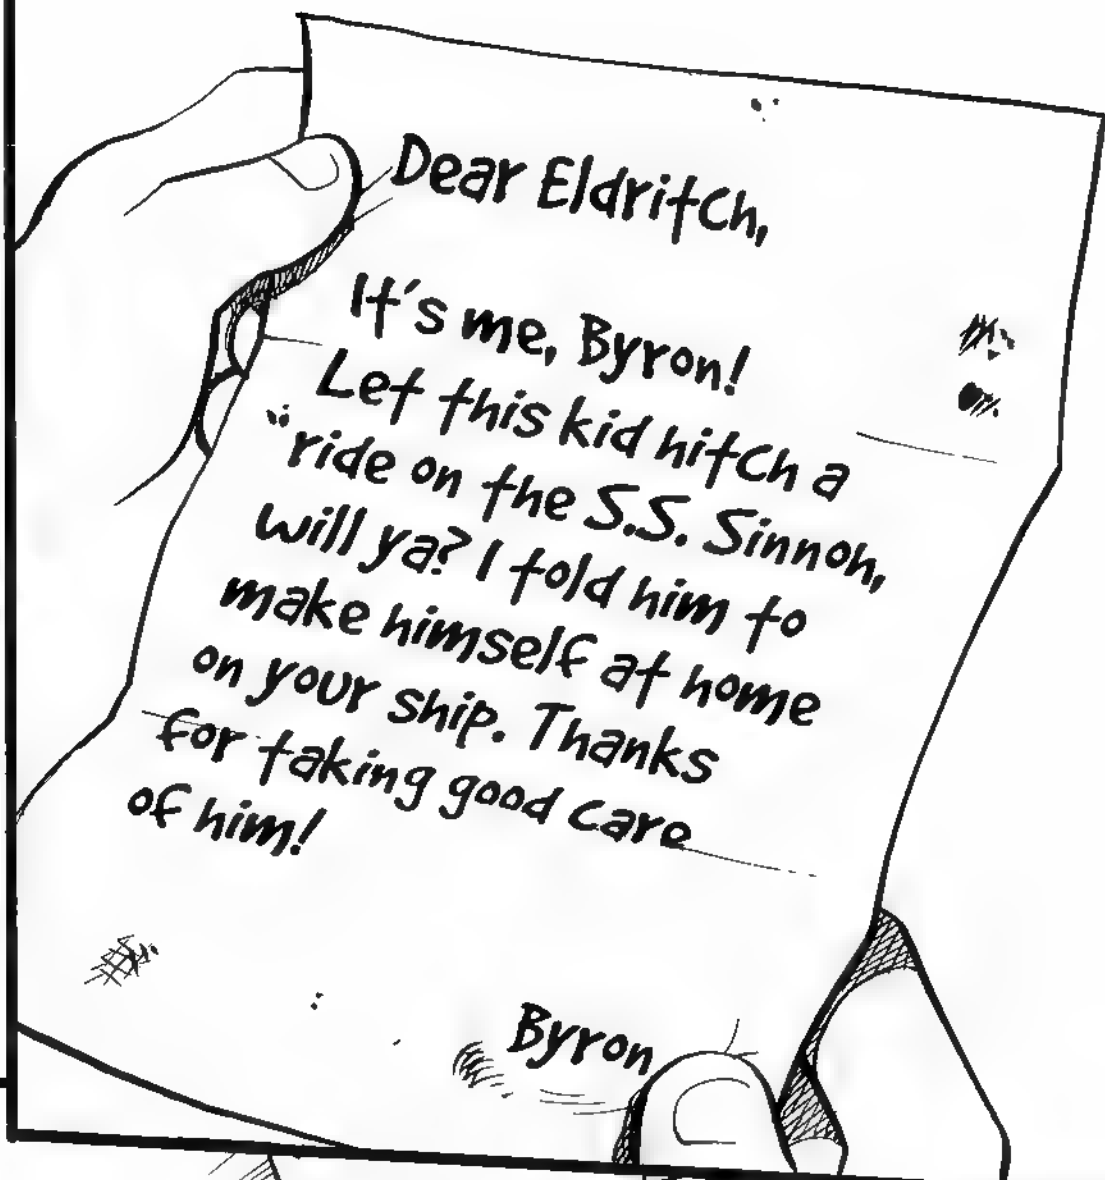 Dear Eldritch,
It's me, Byron!
Let this kid hitch a
ride on the S.S. Sinnoh,
will ya? I told him to
make himself at home
on your ship. Thanks
for taking good care
of him!
Byron